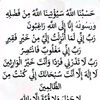 حَسْبُنَا اللَّهُ سَيُؤْتِينَا اللَّهُ مِنْ فَضْلِهِ
وَرَسُولُهُ إِنَّا إِلَى اللَّهِ رَاغِبُونَ
رَبِّ إِنِّي لِمَا أَنْزَلْتَ إِلَيَّ مِنْ خَيْرٍ فَقِيرٌ
رَبِّ إِنِّي مَغْلُوبٌ فَانْتَصِرْ
رَبِّ لَا تَذَرْنِي فَرْدًا وَأَنْتَ خَيْرُ الْوَارِثِينَ
لَا إِلَهَ إِلَّا أَنْتَ سُبْحَانَكَ إِنِّي كُنْتُ مِنَ
الظَّالِمِينَ